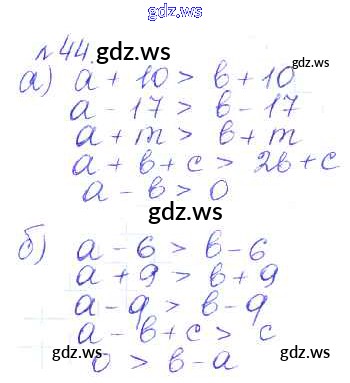 gdz.ws
№44.
gdz.ws
а) a + 10 > b + 10
a - 17 > b - 17
a + m > b + m
a + b + c > 2b + c
a - b > 0
gdz.ws
б) a - 6 > b - 6
a + 9 > b + 9
a - 9 > b - 9
a - b + c > c
gdz.ws gdz.ws
0 > b - a
gdz.ws